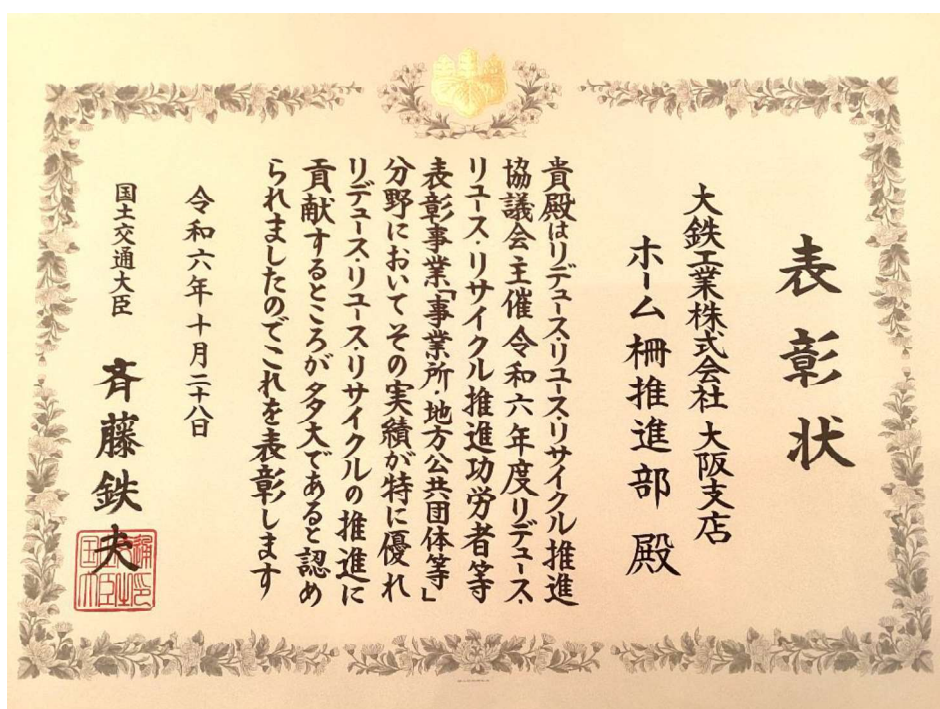 表彰状
大鉄工業株式会社 大阪支店
ホーム柵推進部 殿
貴殿はリデュース・リユース・リサイクル推進
協議会主催 令和六年度リデュース・
リユース・リサイクル推進功労者等
表彰事業「事業所・地方公共団体等」
分野においてその実績が特に優れ
リデュース・リユース・リサイクルの推進に
貢献するところが多大であると認め
られましたのでこれを表彰します
令和六年十月二十八日
国土交通大臣 斉藤鉄夫